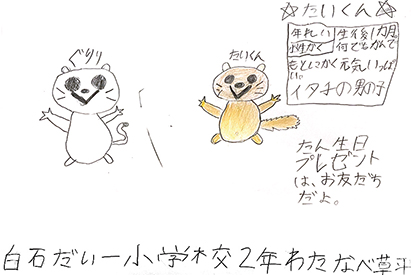 ☆たいくん☆
年れい 生後1カ月
性かく 何でもかんで
もとにかく元気いっぱ
い。
イタチの男の子
ぐりり
たいくん
たん生日
プレゼント
は、お友だち
だよ。
白石だい一小学校2年わたなべ草斗